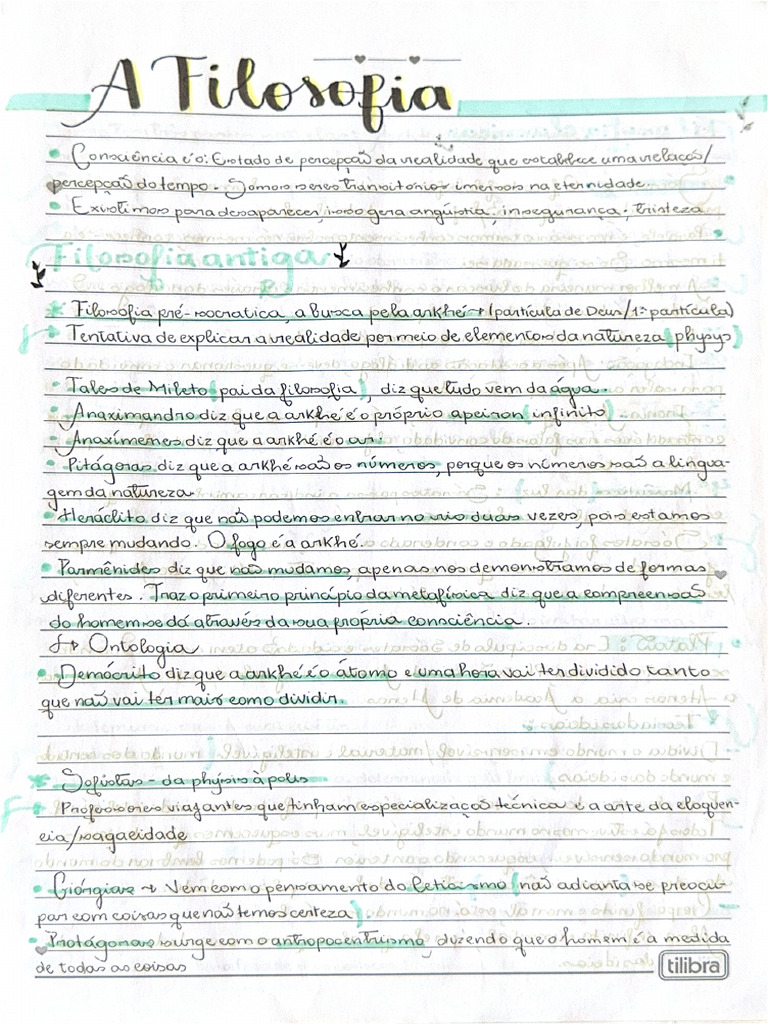 A Filosofia
• Consciência é o: Estado de percepção da realidade que estabelece uma relação/
percepção do tempo. Somos seres transitórios imersos na eternidade.
• Existimos para desaparecer isso gera angústia, insegurança, tristeza
Filosofia antiga
* Filosofia pré-socratica, a busca pela arkhé → (partícula de Deus/1ª partícula)
↳ Tentativa de explicar a realidade por meio de elementos da natureza (physys)
• Tales de Mileto (pai da filosofia), diz que tudo vem da água.
• Anaximandro diz que a arkhé é o próprio apeiron (infinito)
• Anaxímenes diz que a arkhé é o ar.
• Pitágoras diz que a arkhé são os números, porque os números são a lingua-
gem da natureza.
• Heráclito diz que não podemos entrar no rio duas vezes, pois estamos
sempre mudando. O fogo é a arkhé.
• Parmênides diz que não mudamos, apenas nos demonstramos de formas
diferentes. Traz o primeiro princípio da metafísica diz que a compreensão
do homem se dá através da sua própria consciência.
↳ Ontologia
• Demócrito diz que a arkhé é o átomo e uma hora vai ter dividido tanto
que não vai ter mais como dividir.
* Sofistas - da physis à polis
↳ Professores viajantes que tinham especialização técnica é a arte da eloquen-
cia/sagacidade
• Giórgias → Vem com o pensamento do Ceticismo (não adianta se preocu-
par com coisas que não temos certeza)
• Protágoras surge com o antropocentrismo, dizendo que o homem é a medida
de todas as coisas
tilibra